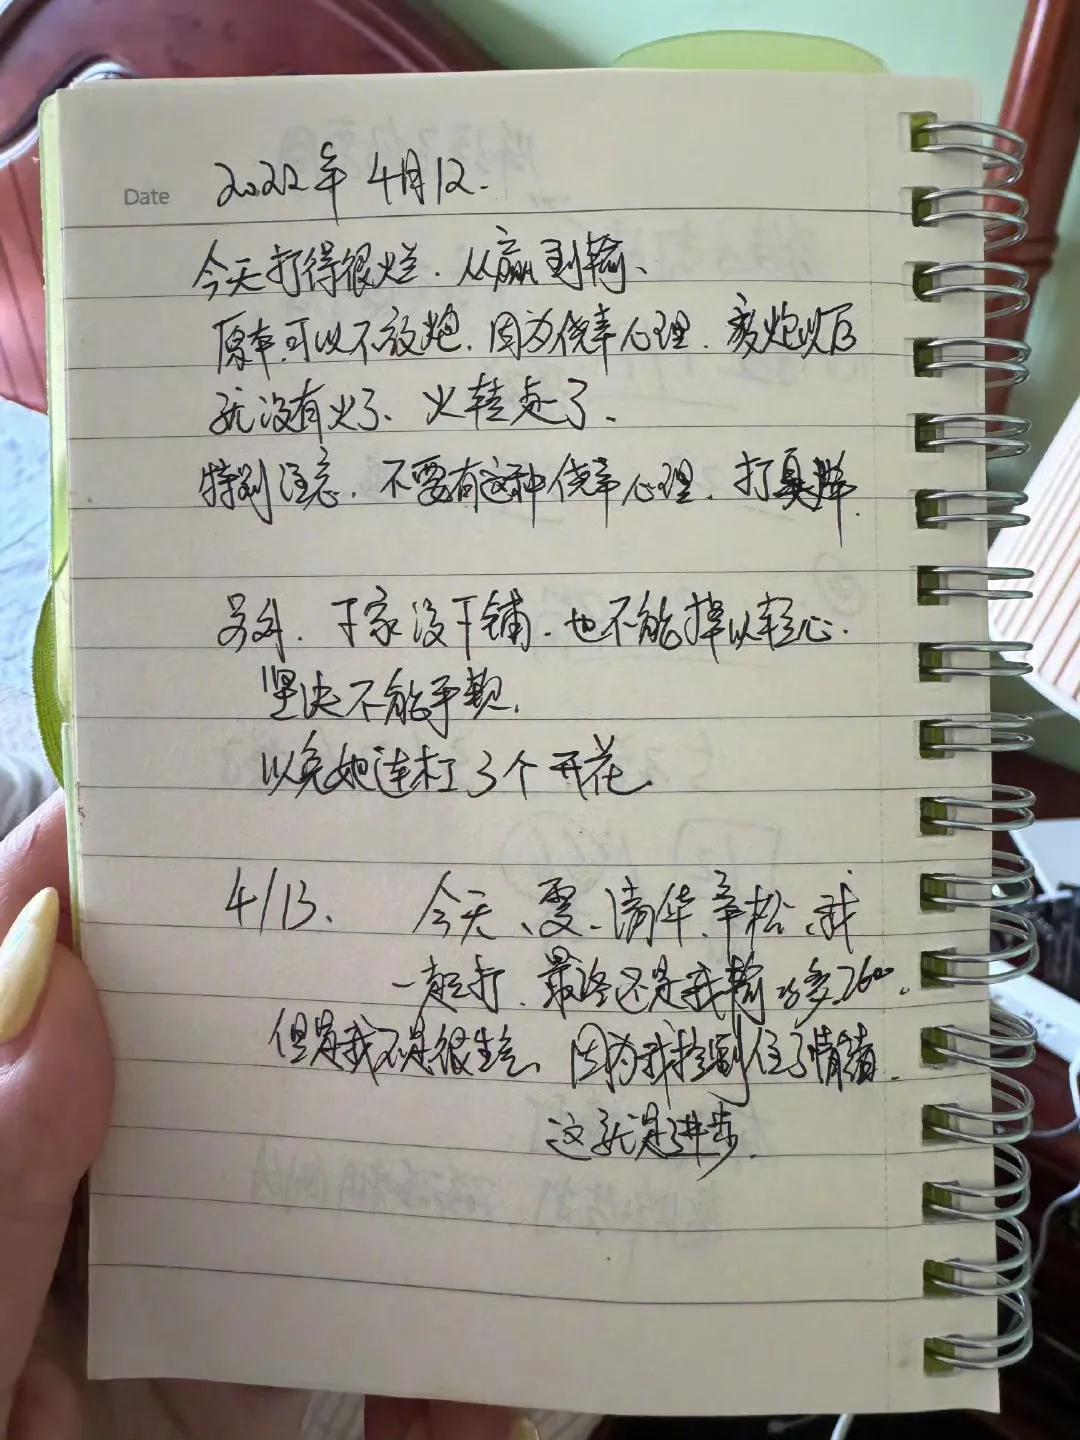 Date 2022年4月12.
今天打得很烂. 从赢到输、
原本可以不放炮. 因为侥幸心理. 放炮以后
就没有火了、火转走了.
特别注意. 不要有这种侥幸心理. 打臭牌.
另外. 下家没下铺. 也不能掉以轻心.
坚决不能乎视.
以免她连杠了3个开花
4/13、 今天、雯、清华、辛松、我
一起打. 最终还是我输 多2600.
但是我不是很生气、因为我控制住了情绪.
这就是进步.